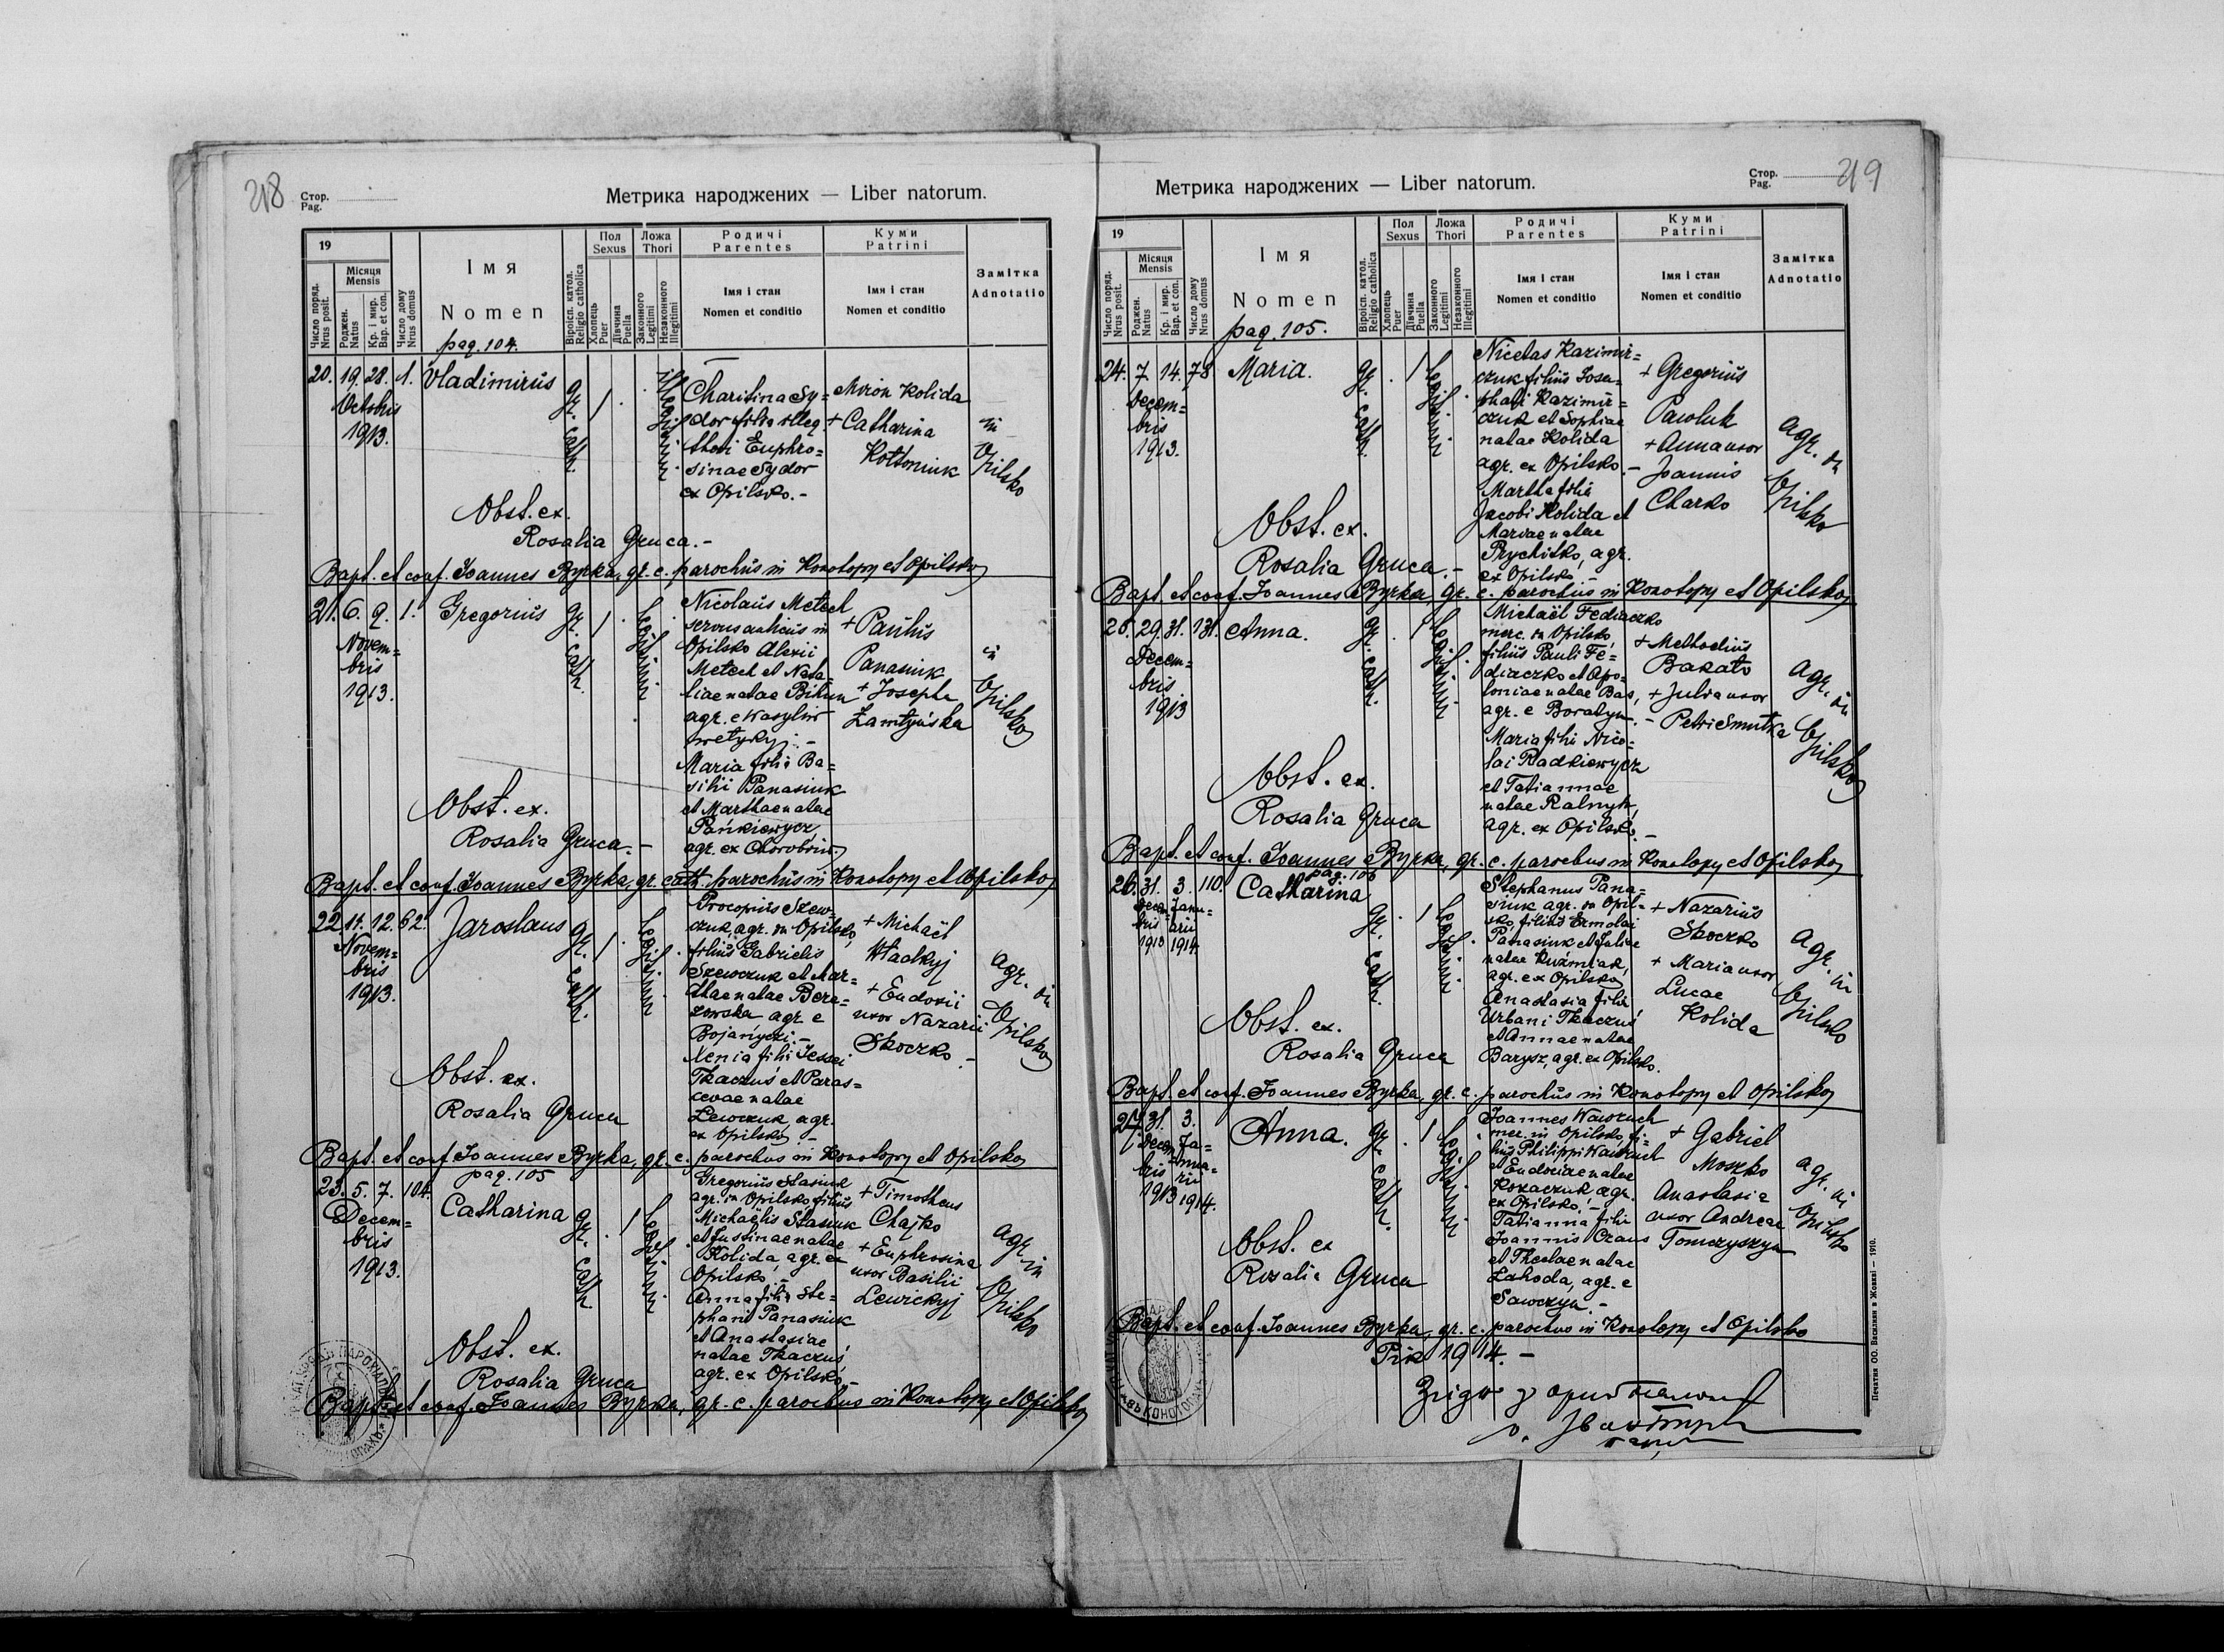 218
Стор.
Pag.
Метрика народжених — Liber natorum.
19
Число поряд.
Nrus posit.
Місяця
Mensis
Роджен.
Natus
Кр. і мир.
Bap. et con.
Число дому
Nrus domus
Імя
Nomen
pag. 104.
Віроісп. катол.
Religio catholica
Пол
Sexus
Хлопець
Puer
Дівчина
Puella
Ложа
Thori
Законного
Legitimi
Незаконного
Illegitimi
Родичі
Parentes
Імя і стан
Nomen et conditio
Куми
Patrini
Імя і стан
Nomen et conditio
Замітка
Adnotatio
20. 19. 28. 1. Vladimirus gr. cath. 1 . . illegitimi
Octobris
1913.
Charitina Sy=
dor filia illeg.
thori Euphro=
sinae Sydor
ex Opilsko.-
Miron Kolida
+ Catharina
Kottoniuk
in Opilsko
Obst. ex.
Rosalia Gruca.-
Bapt. et conf. Joannes Byrka, gr. c. parochus in Konotopy et Opilsko
21. 6. 9. 1. Gregorius gr. cath. 1 . legitimi
Novem=
bris
1913.
Nicolaus Metech
servus aulicus in
Opilsko Alexii
Metech et Nata=
liae natae Bihun
agr. e Wasyliw
wetykyj.-
Maria filia Ba=
silii Panasiuk
et Marthae natae
Pańkiewycz,
agr. ex Chorobrów
+ Paulus
Panasiuk
+ Josepha
in Opilsko
Obst. ex.
Rosalia Gruca.-
Bapt. et conf. Joannes Byrka, gr. cath. parochus in Konotopy et Opilsko
22. 11. 12. 62. Jaroslaus gr. cath. 1 . legitimi .
Novem=
bris
1913.
Procopius Szew=
czuk, agr. in Opilsko,
filius Gabrielis
Szewczuk et Mar=
thae natae Bere=
zowska agr. e
Bojanyczi.-
Xenia filia Jessei
Tkaczuś et Paras=
cevae natae
Lewczuk, agr.
ex Opilsko.-
+ Michaël
Hładkyj
+ Eudoxii
uxor Nazarii
Skoczko.-
agr. in Opilsko
Obst. ex.
Rosalia Gruca
Bapt. et conf. Joannes Byrka, gr. c. parochus in Konotopy et Opilsko
pag. 105
23. 5. 7. 104. Catharina gr. cath. . 1 legitimi .
Decem=
bris
1913.
Gregorius Stasiuk
agr. in Opilsko, filius
Michaëlis Stasiuk
et Justinae natae
Kolida, agr. ex
Opilsko.-
Anna filia Ste=
phani Panasiuk
et Anastasiae
natae Tkaczuś,
agr. ex Opilsko.-
+ Timotheus
Chajko
+ Euphrosina
uxor Basilii
Lewickyj
agr. in Opilsko
Obst. ex.
Rosalia Gruca
Bapt. et conf. Joannes Byrka, gr. c. parochus in Konotopy et Opilsko
219
Стор.
Pag.
Метрика народжених — Liber natorum.
19
Число поряд.
Nrus posit.
Місяця
Mensis
Роджен.
Natus
Кр. і мир.
Bap. et con.
Число дому
Nrus domus
Імя
Nomen
pag. 105.
Віроісп. катол.
Religio catholica
Пол
Sexus
Хлопець
Puer
Дівчина
Puella
Ложа
Thori
Законного
Legitimi
Незаконного
Illegitimi
Родичі
Parentes
Імя і стан
Nomen et conditio
Куми
Patrini
Імя і стан
Nomen et conditio
Замітка
Adnotatio
24. 7. 14. 78 Maria. gr. cath. . 1 legitimi .
Decem=
bris
1913.
Nicetas Kazimir=
czuk filius Josa=
phati Kazimir=
czuk et Sophiae
natae Kolida
agr. ex Opilsko.-
Martha filia
Jacobi Kolida et
Mariae natae
Prychitko, agr.
ex Opilsko.-
+ Gregorius
Pawluk
+ Anna uxor
Joannis
Charko
agr. in Opilsko
Obst. ex.
Rosalia Gruca.-
Bapt. et conf. Joannes Byrka, gr. c. parochus in Konotopy et Opilsko
25. 29. 31. 131. Anna. gr. cath. . 1 legitimi .
Decem=
bris
1913
Michaël Fediaczko
merc. in Opilsko,
filius Pauli Fe=
diaczko et Apo=
loniae natae Bas,
agr. e Boratyn.-
Maria filia Nico=
lai Radkiewycz
et Tatiannae
natae Ralnyk,
agr. ex Opilsko.-
+ Methodius
Bakato
+ Julia uxor
Petri Smutka
agr. in Opilsko
Obst. ex.
Rosalia Gruca
Bapt. et conf. Joannes Byrka, gr. c. parochus in Konotopy et Opilsko
pag. 106
26. 31. 3. 110. Catharina gr. cath. . 1 legitimi .
Decem=bris 1913 Janu=arii 1914.
Stephanus Pana=
siuk agr. in Opil=
sko, filius Ermolai
Panasiuk et Juliae
natae Kuźmiak,
agr. ex Opilsko
Anastasia filia
Urbani Tkaczuś
et Annae natae
Barysz, agr. ex Opilsko.
+ Nazarius
Skoczko
+ Maria uxor
Lucae
Kolida
agr. in Opilsko
Obst. ex.
Rosalia Gruca
Bapt. et conf. Joannes Byrka, gr. c. parochus in Konotopy et Opilsko
27. 31. 3. Anna. gr. cath. . 1 legitimi .
Decembris 1913 Januarii 1914.
Joannes Wawruch
mer. in Opilsko, fi=
lius Philippi Wawruch
et Eudoxiae natae
Kozaczuk agr.
ex Opilsko.-
Tatianna filia
Joannis Czaus
et Theclae natae
Zahoda, agr. e
Sawczyn.-
+ Gabriel
Moszko
Anastasia
uxor Andreae
Tomczyszyn
agr. in Opilsko
Obst. ex
Rosalia Gruca
Bapt. et conf. Joannes Byrka, gr. c. parochus in Konotopy et Opilsko
Рік 1914.-
Згідно з оригіналом
Печатня ОО. Василиян в Жовкві — 1910.